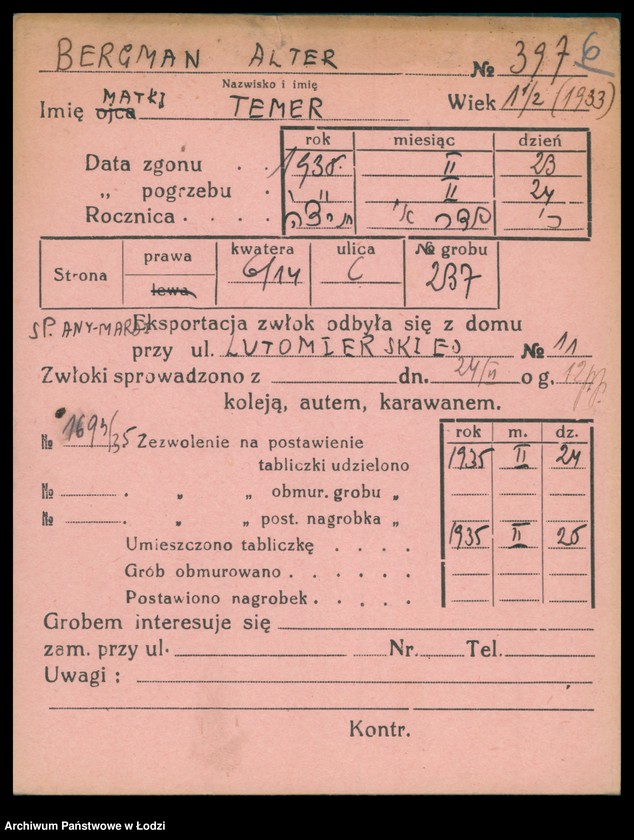 BERGMAN ALTER № 3976
Nazwisko i imię
Imię ojca MATKI TEMER Wiek 1 1/2 (1933)
rok miesiąc dzień
Data zgonu . . 1935. II 23
„ pogrzebu . „ II 24
Rocznica . . . .
Strona prawa lewa kwatera 6/14 ulica C № grobu 237
SP. ANY-MARJI Eksportacja zwłok odbyła się z domu
przy ul. LUTOMIERSKIEJ № 11
Zwłoki sprowadzono z dn. 24/II o g. 12 pp.
koleją, autem, karawanem.
rok m. dz.
№ 1693/35 Zezwolenie na postawienie
tabliczki udzielono 1935 II 24
№ . „ „ obmur. grobu „
№ . „ „ post. nagrobka „
Umieszczono tabliczkę . . . . 1935 II 25
Grób obmurowano . . . . . .
Postawiono nagrobek . . . . .
Grobem interesuje się
zam. przy ul. Nr. Tel.
Uwagi :
Kontr.
Archiwum Państwowe w Łodzi